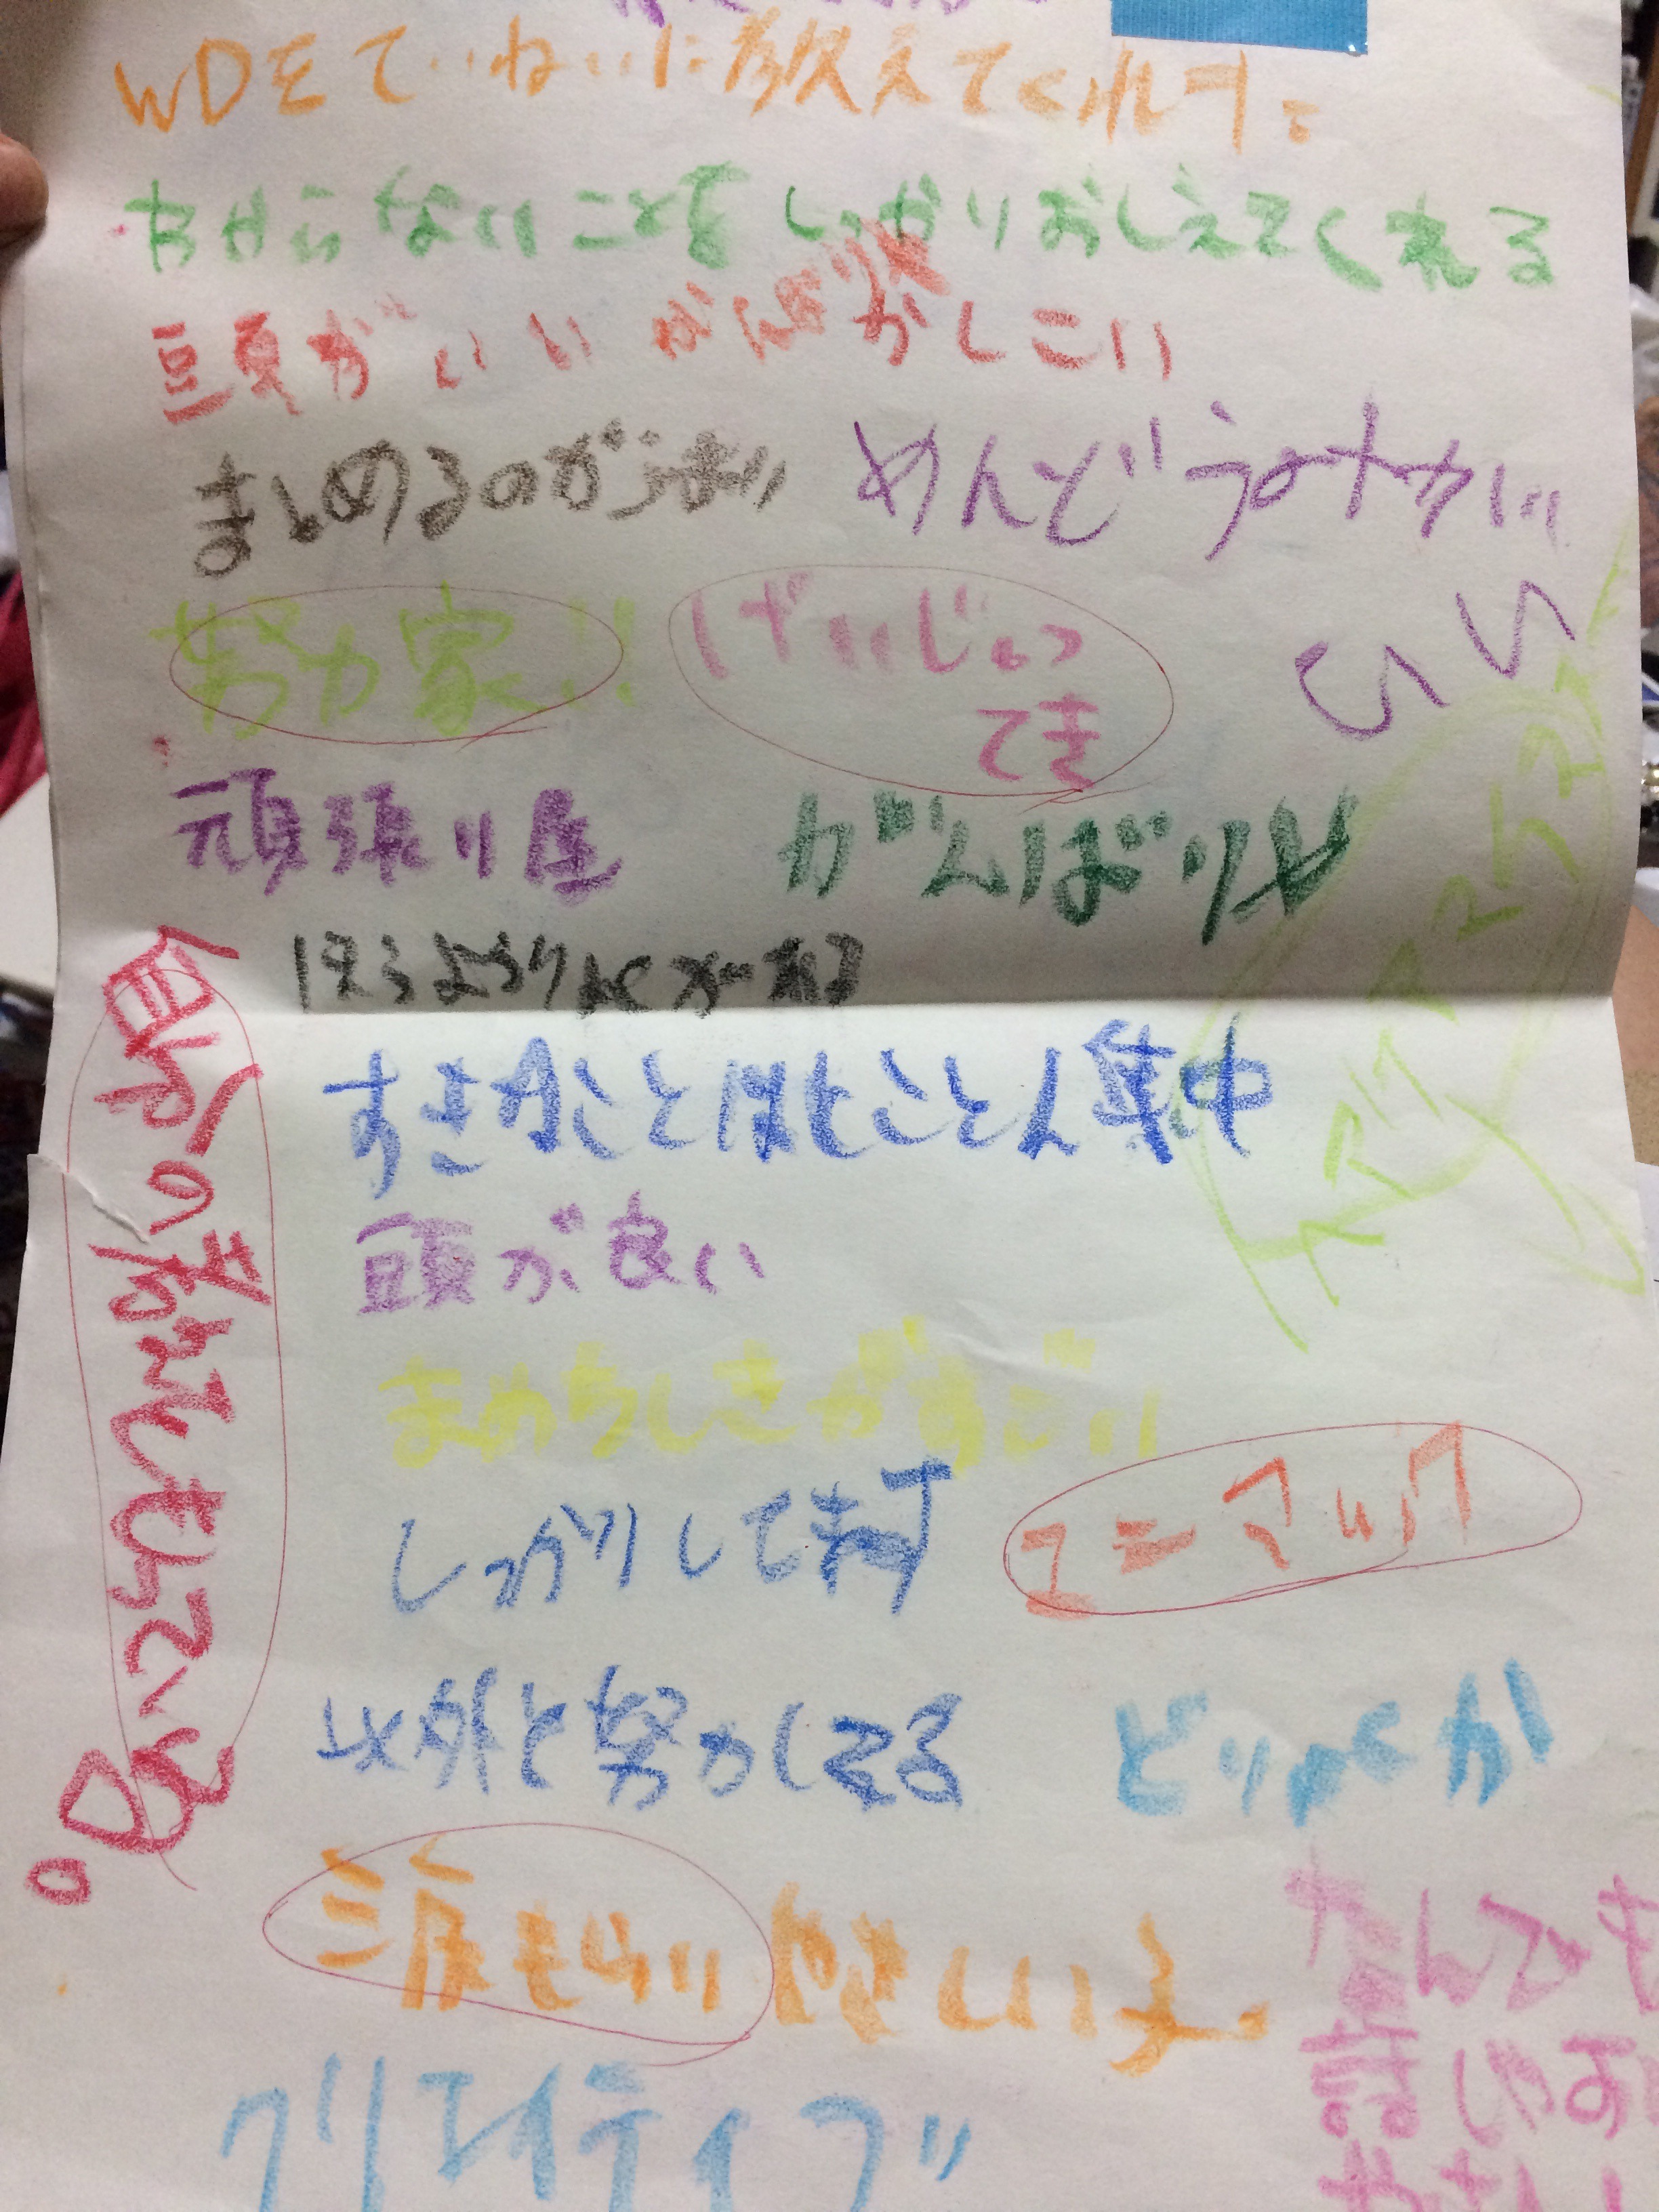 WDをていねいに教えてくれます。
わからないことをしっかりおしえてくれる
頭がいい がんばりや かしこい
まとめるのがうまい
めんどうみが
いい
努力家!!
げいじゅつ
てき
頑張り屋
がんばりや
すきなことはとことん集中
頭が良い
まめちしきがすごい
しっかりしてます
ユニーク
以外と努力してる
どりょくか
誰も
やさしい子。
自分の考えをもっている。
なんでも
話しやす
やさし
クリエイティブ